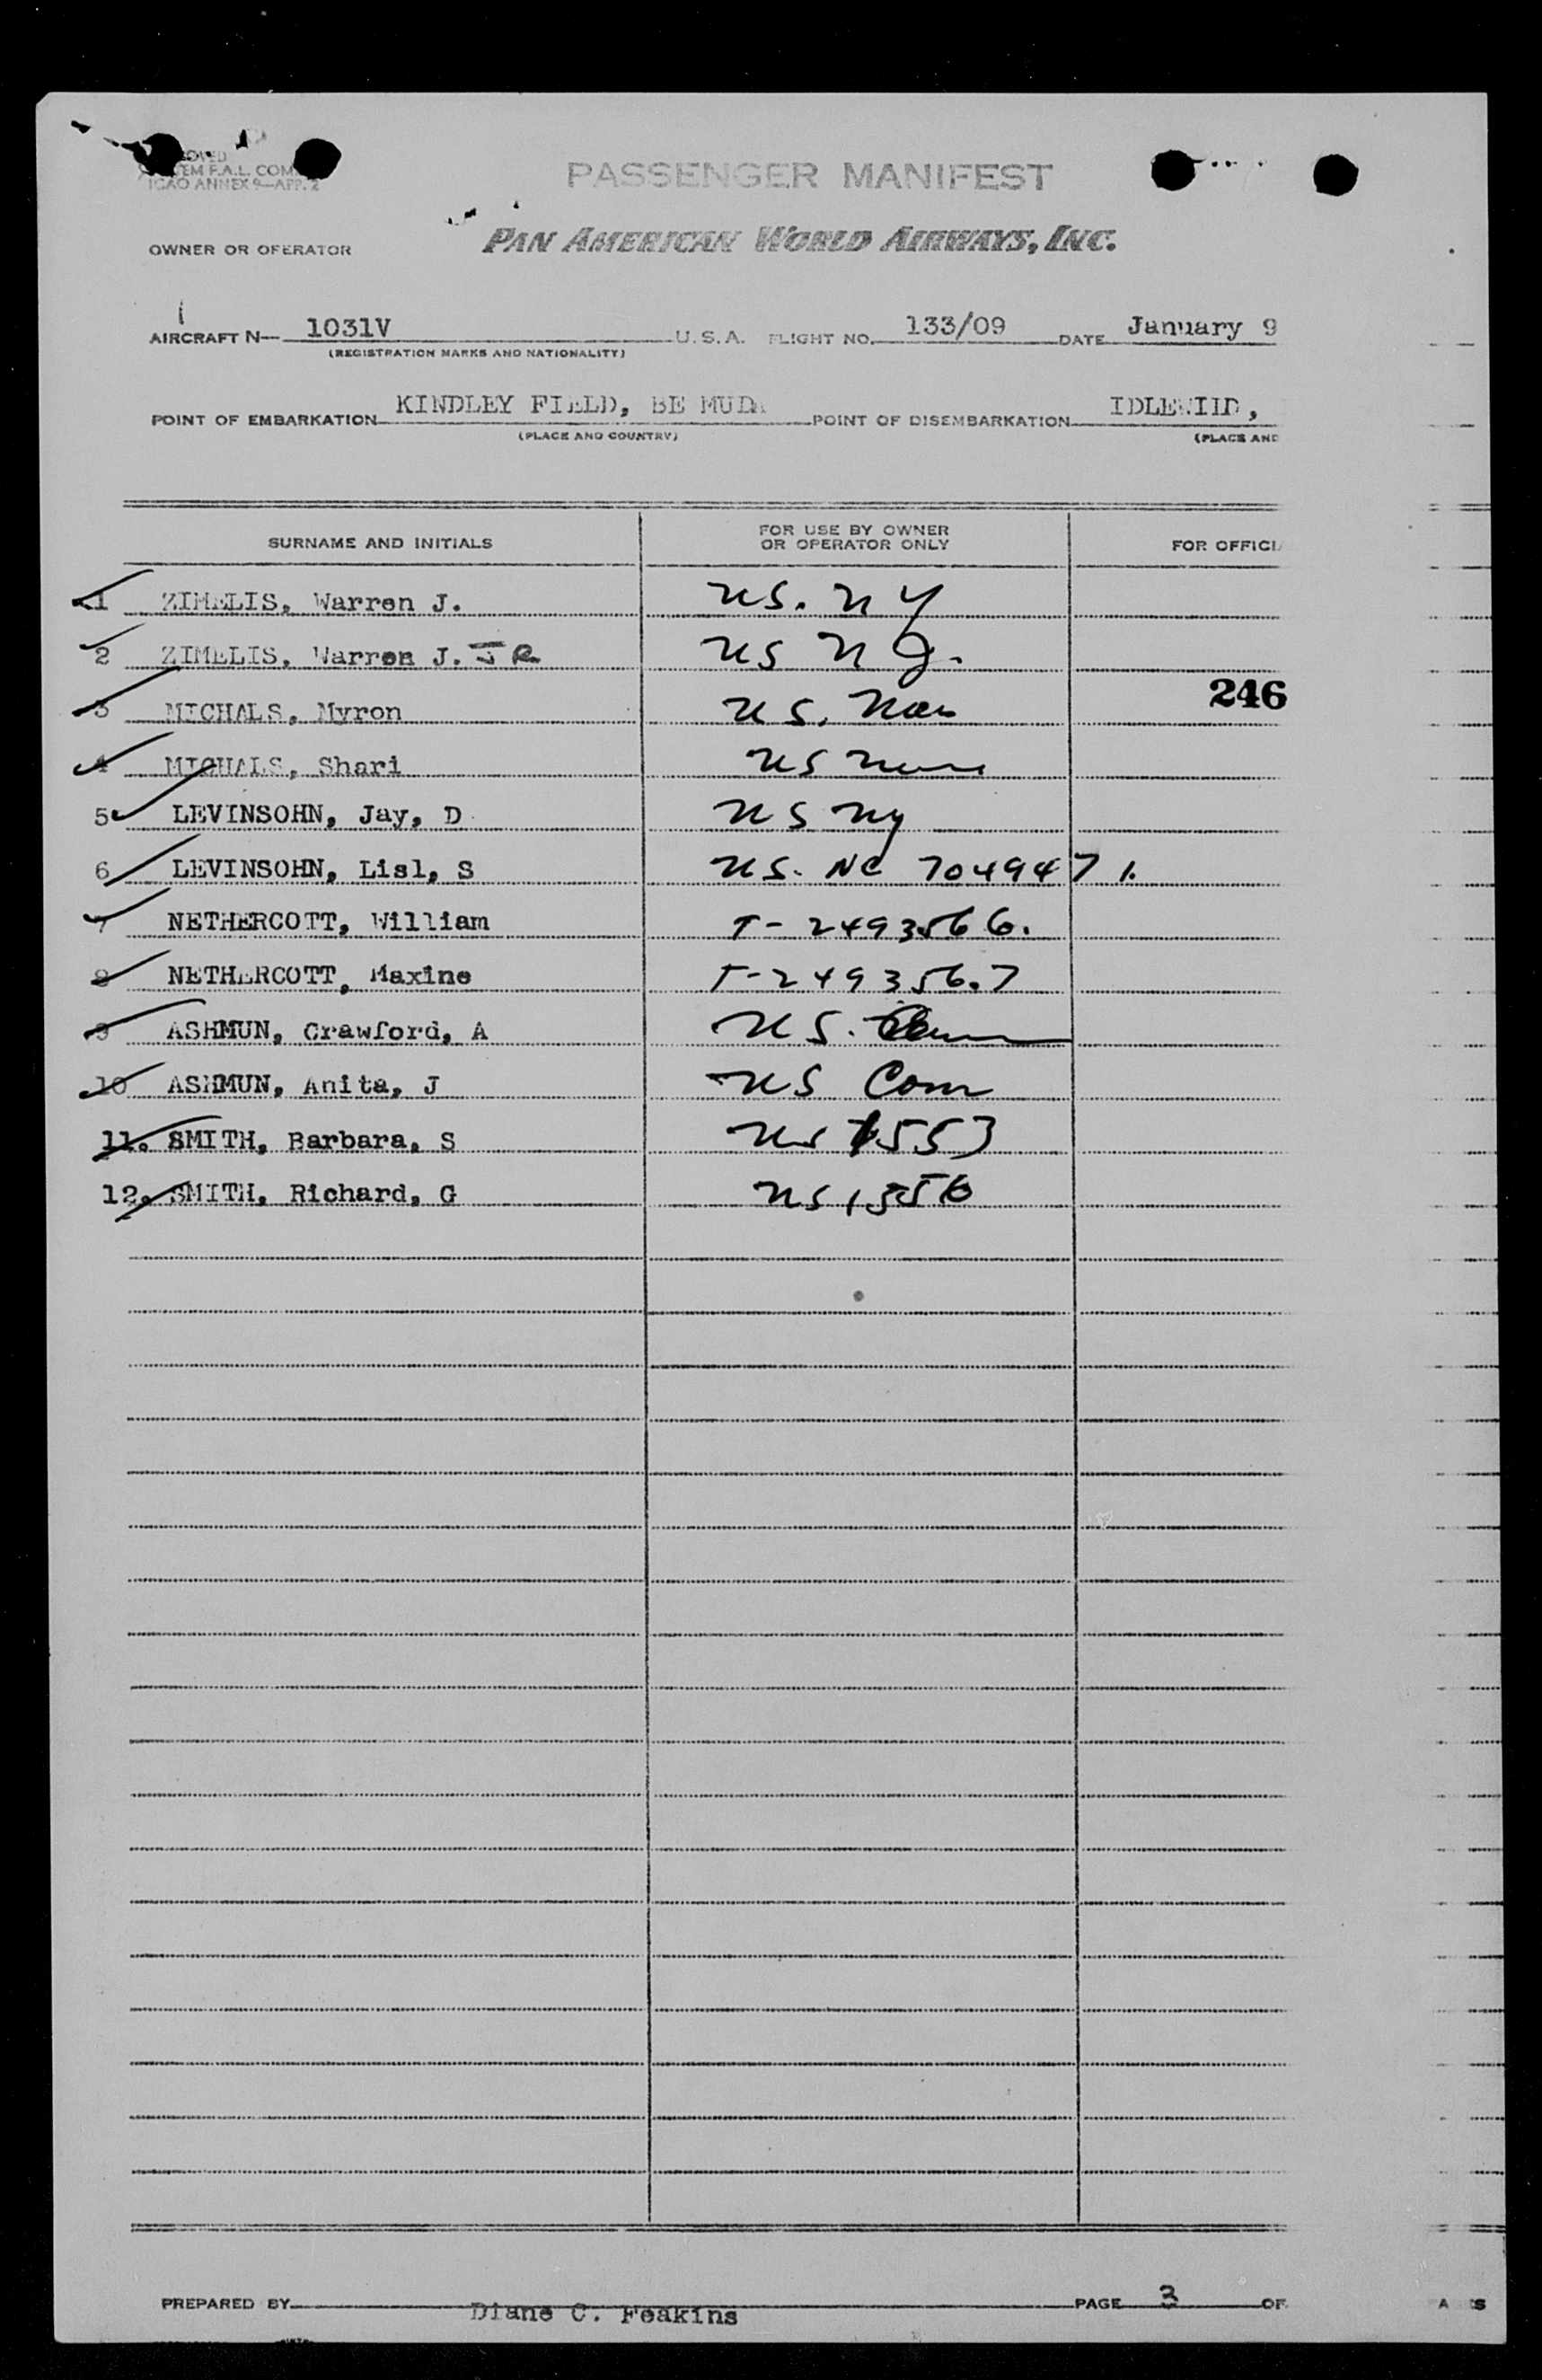 OVED
TEM F.A.L. COM
ICAO ANNEX 9—APP. 2
PASSENGER MANIFEST
OWNER OR OPERATOR PAN AMERICAN WORLD AIRWAYS, INC.
AIRCRAFT N— 1031V U.S.A. FLIGHT NO. 133/09 DATE January 9
(REGISTRATION MARKS AND NATIONALITY)
POINT OF EMBARKATION KINDLEY FIELD, BE MUDA POINT OF DISEMBARKATION IDLEWILD,
(PLACE AND COUNTRY) (PLACE AND
SURNAME AND INITIALS FOR USE BY OWNER OR OPERATOR ONLY FOR OFFICIA
1 ZIMELIS, Warren J. US. NY
2 ZIMELIS, Warren J. JR US NJ.
246
3 MICHALS, Myron US.
4 MICHALS, Shari US
5 LEVINSOHN, Jay, D US NY
6 LEVINSOHN, Lisl, S US. NC 7049471.
7 NETHERCOTT, William T-2493566.
8 NETHERCOTT, Maxine T-2493567
9 ASHMUN, Crawford, A US.
10 ASHMUN, Anita, J US Conn
11. SMITH, Barbara, S US 1553
12. SMITH, Richard, G US 1556
PREPARED BY Diane C. Feakins PAGE 3 OF A S